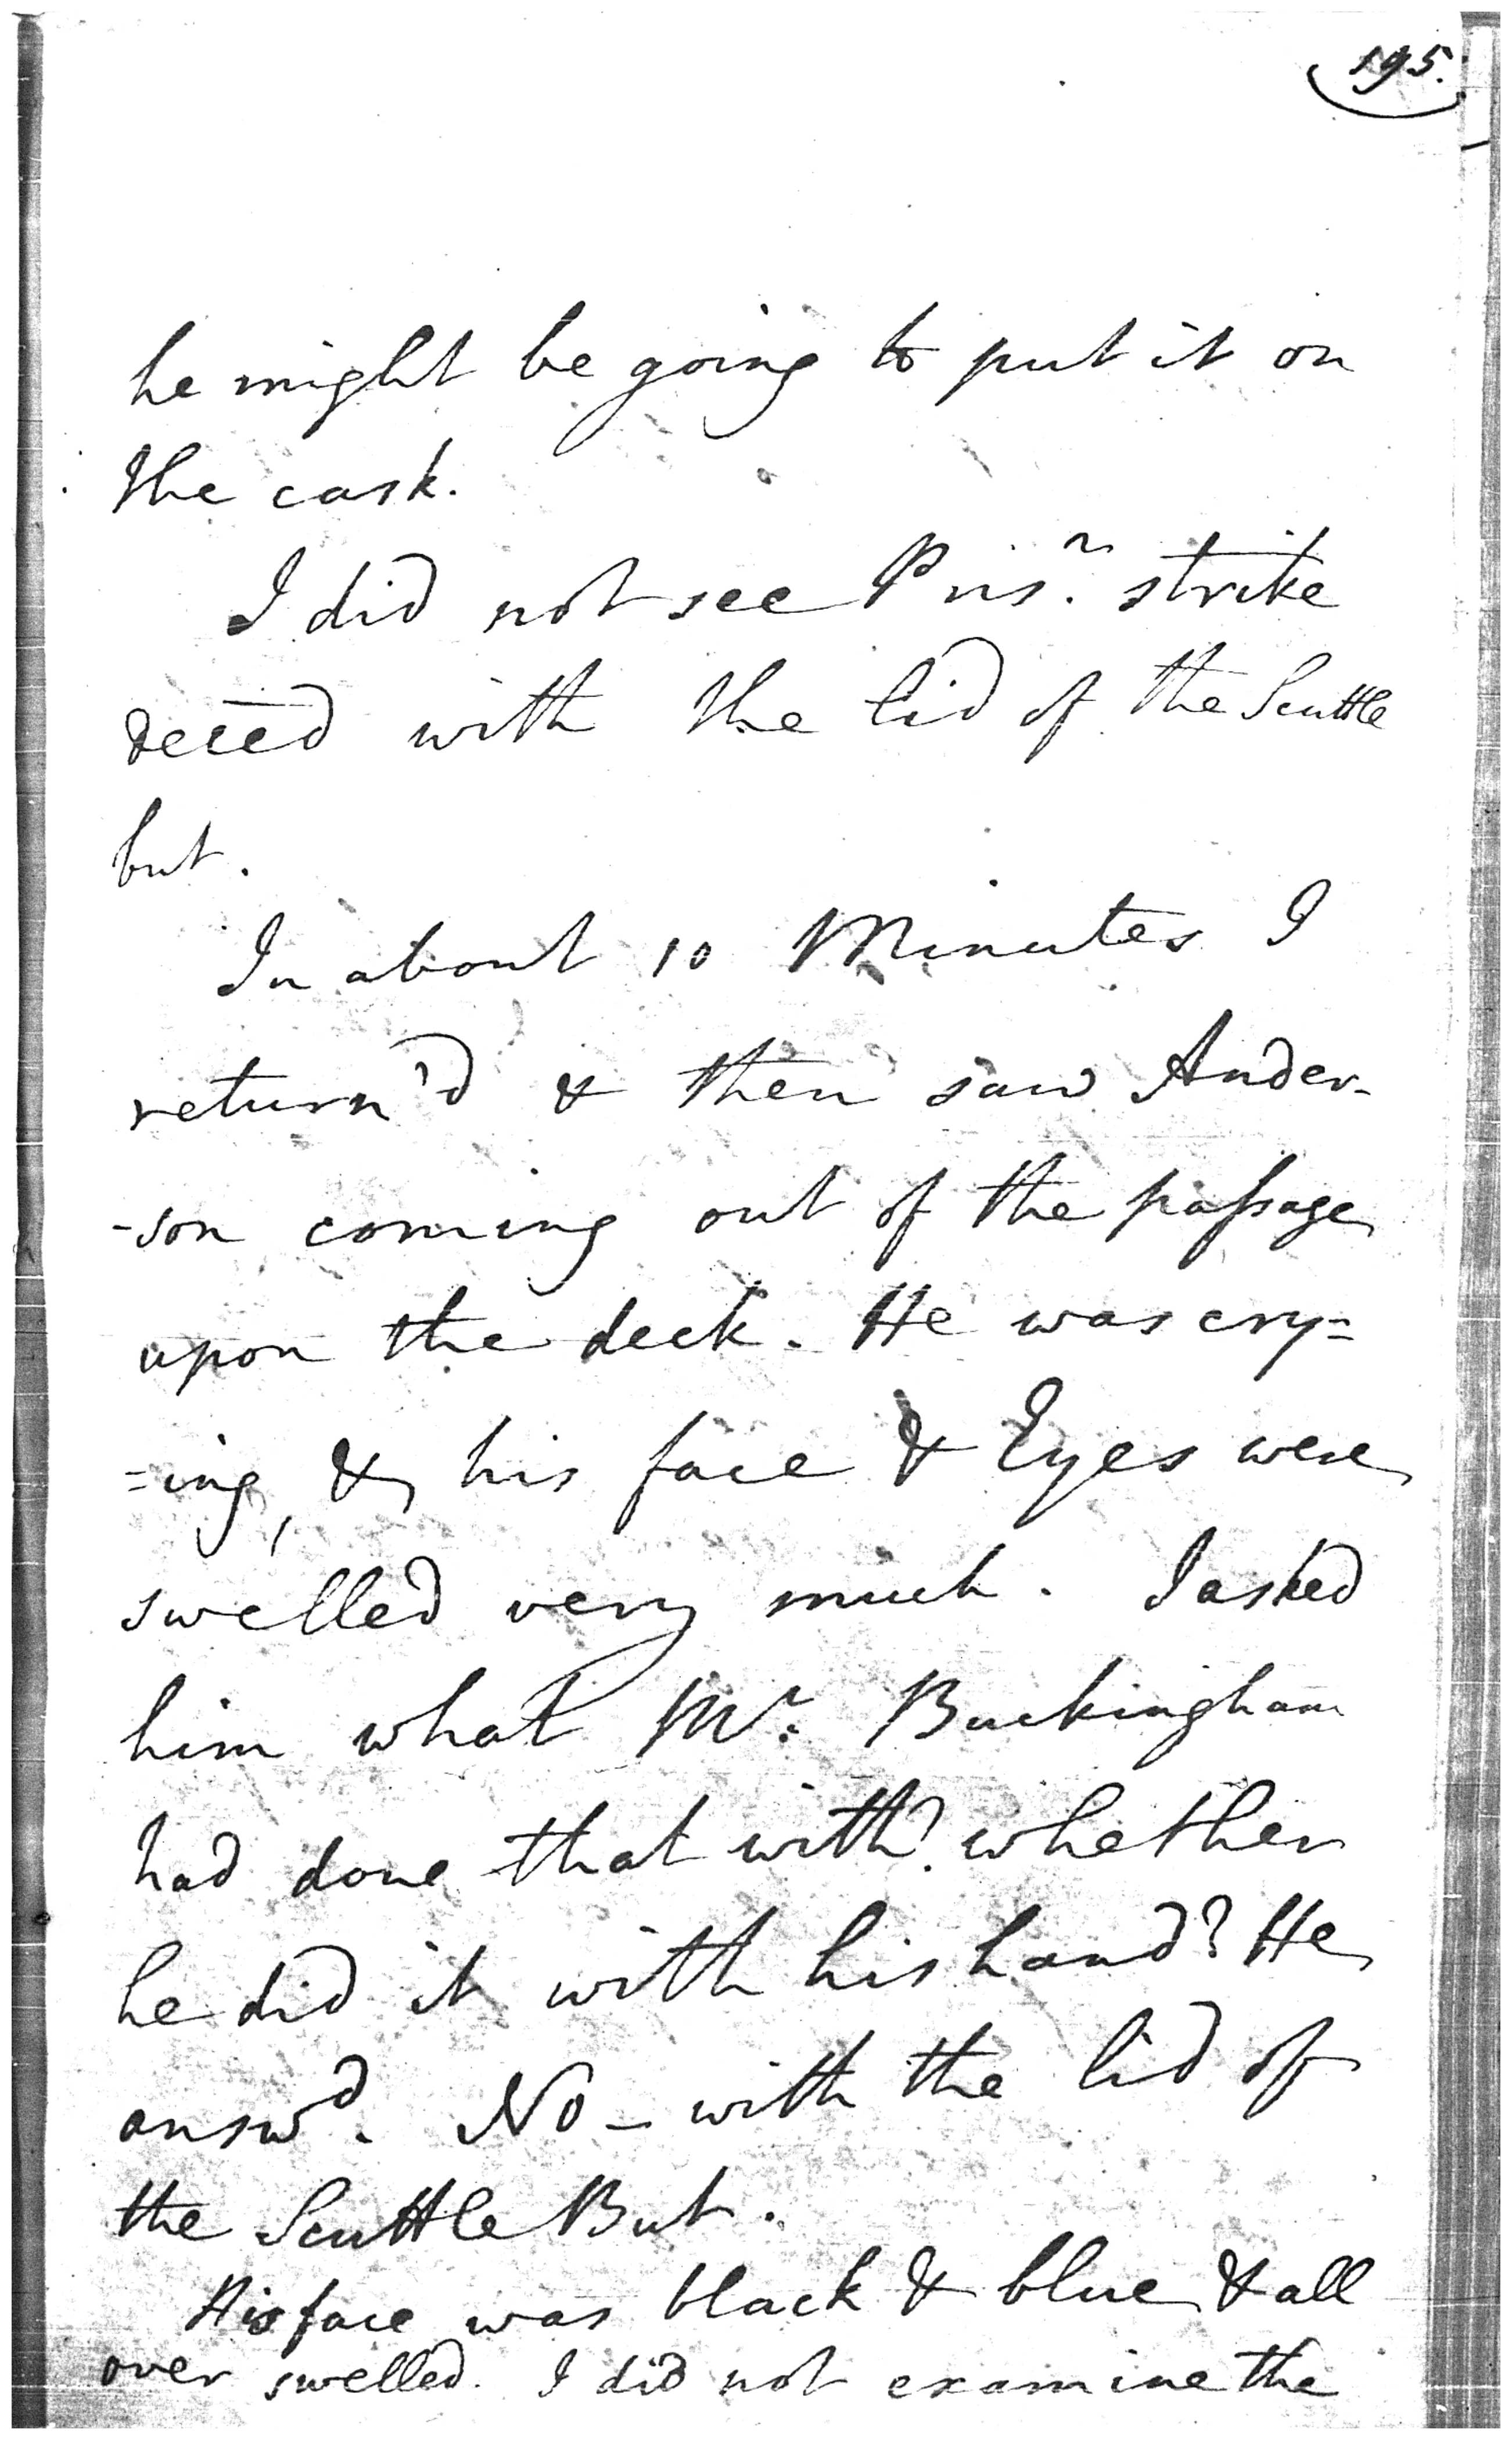 195.
he might be going to put it on
the cask.
I did not see Prisr. strike
deced with the lid of the Scuttle
but.
In about 10 Minutes I
return'd & then saw Ander-
-son coming out of the passage
upon the deck. He was cry=
=ing, & his face & Eyes were
swelled very much. I asked
him what Mr. Buckingham
had done that with? whether
he did it with his hand? He
answd. No - with the lid of
the Scuttle But.
His face was black & blue & all
over swelled. I did not examine the